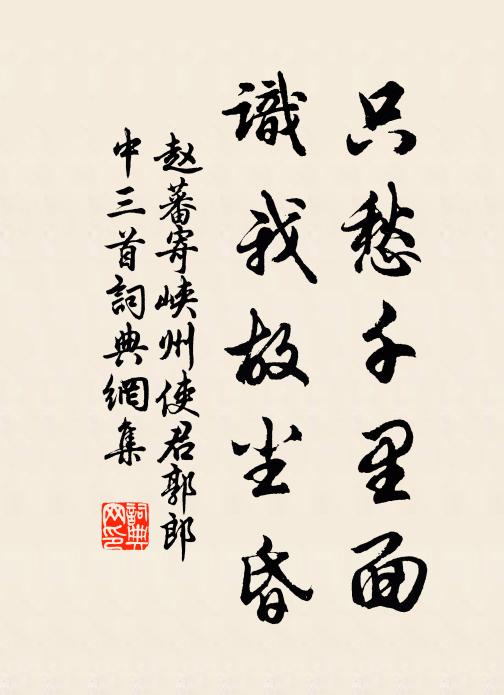 只愁千里面
識我故尘昏
赵蕃寄峡州使君郭郎
中三首詞典網集
詞典
网印